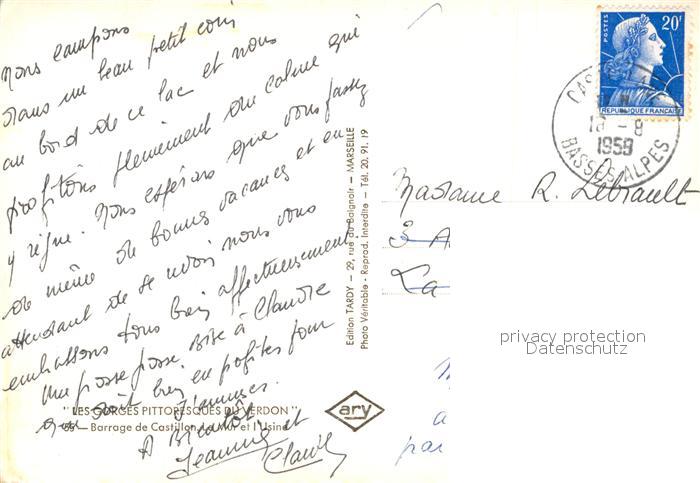 Nous campons
dans un beau petit coin
au bord de ce lac et nous
profitons pleinement du calme qui
y règne. Nous espérons que vous faites
de même de bonnes vacances et en
attendant de se revoir nous vous
embrassons tous bien affectueusement
Une grosse grosse Bise à Claudie
qui doit bien en profiter pour
s'amuser.
A Bientôt
Jeannine et
Claude
"LES GORGES PITTORESQUES DU VERDON"
55 — Barrage de Castillon, Le Mur et l'Usine
Edition TARDY — 29, rue du Baignoir — MARSEILLE
Photo Véritable - Reprod. Interdite — Tél. 20. 91. 19
ary
POSTES
20F
REPUBLIQUE FRANÇAISE
CAS
18 - 8
1958
BASSES ALPES
Madame R. Lebrault
3 A
La
privacy protection
Datenschutz
a
par